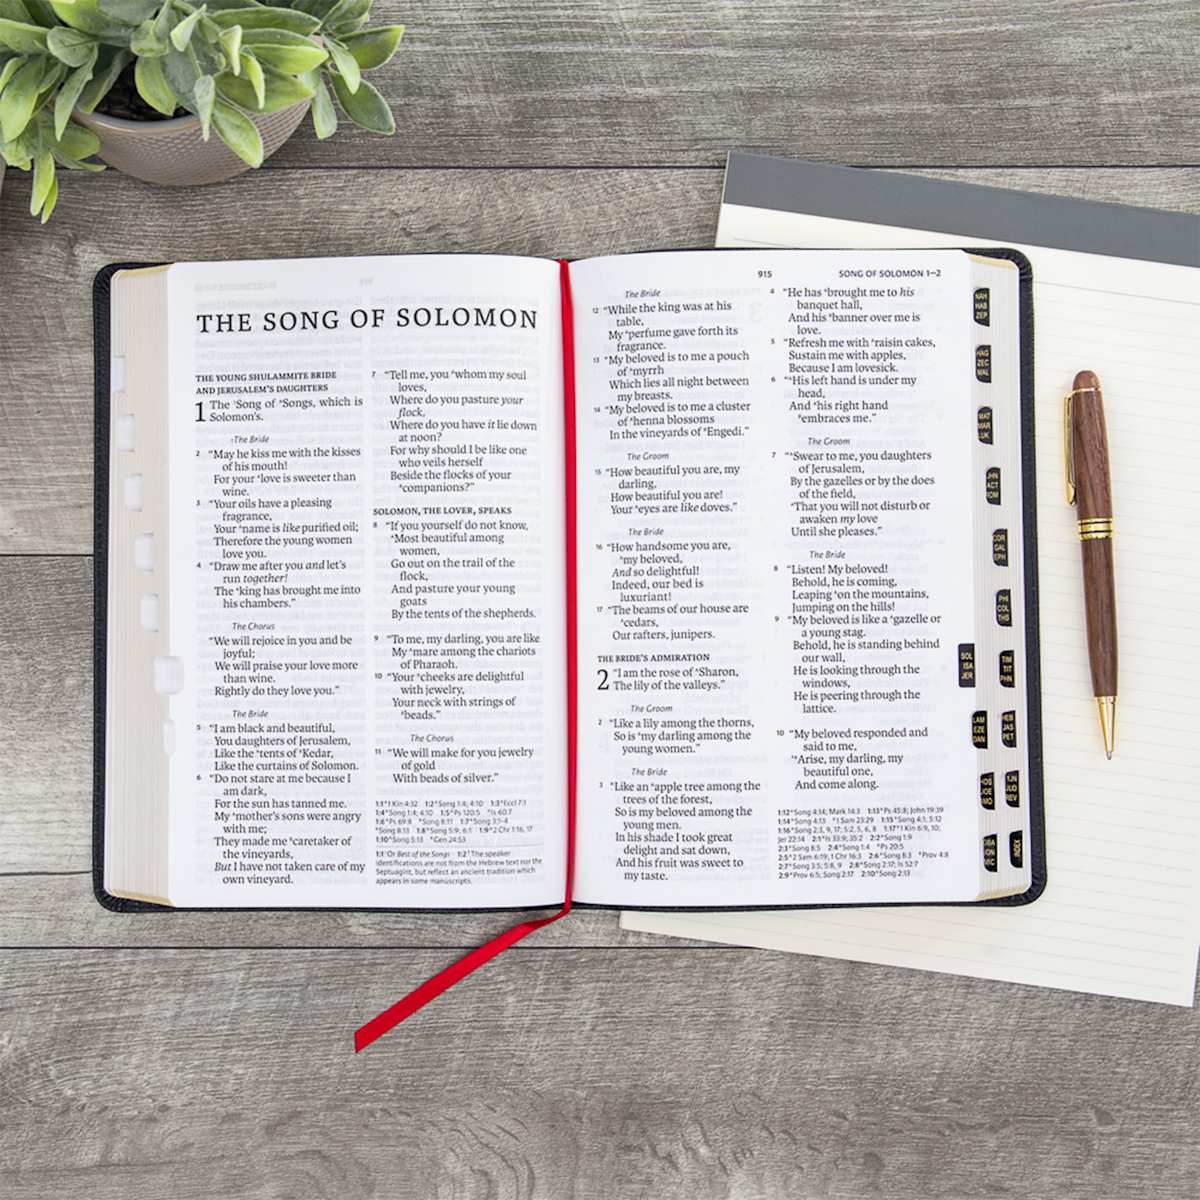 THE SONG OF SOLOMON
THE YOUNG SHULAMMITE BRIDE
AND JERUSALEM'S DAUGHTERS
1 The Song of Songs, which is
Solomon's.
The Bride
2 "May he kiss me with the kisses
of his mouth!
For your love is sweeter than
wine.
3 "Your oils have a pleasing
fragrance,
Your name is like purified oil;
Therefore the young women
love you.
4 "Draw me after you and let's
run together!
The king has brought me into
his chambers."
The Chorus
"We will rejoice in you and be
joyful;
We will praise your love more
than wine.
Rightly do they love you."
The Bride
5 "I am black and beautiful,
You daughters of Jerusalem,
Like the tents of Kedar,
Like the curtains of Solomon.
6 "Do not stare at me because I
am dark,
For the sun has tanned me.
My mother's sons were angry
with me;
They made me caretaker of
the vineyards,
But I have not taken care of my
own vineyard.
7 "Tell me, you whom my soul
loves,
Where do you pasture your
flock,
Where do you have it lie down
at noon?
For why should I be like one
who veils herself
Beside the flocks of your
companions?"
SOLOMON, THE LOVER, SPEAKS
8 "If you yourself do not know,
Most beautiful among
women,
Go out on the trail of the
flock,
And pasture your young
goats
By the tents of the shepherds.
9 "To me, my darling, you are like
My mare among the chariots
of Pharaoh.
10 "Your cheeks are delightful
with jewelry,
Your neck with strings of
beads."
The Chorus
11 "We will make for you jewelry
of gold
With beads of silver."
1:1 1 Kin 4:32 1:2 Song 1:4; 4:10 1:3 Eccl 7:1
1:4 Song 1:4; 4:10 1:5 Ps 120:5 Is 60:7
1:6 Ps 69:8 Song 8:11 1:7 Song 3:1-4
Song 8:13 1:8 Song 5:9; 6:1 1:9 2 Chr 1:16, 17
1:10 Song 5:13 Gen 24:53
1:1 Or Best of the Songs 1:2 The speaker
identifications are not from the Hebrew text nor the
Septuagint, but reflect an ancient tradition which
appears in some manuscripts.
915 SONG OF SOLOMON 1–2
The Bride
12 "While the king was at his
table,
My perfume gave forth its
fragrance.
13 "My beloved is to me a pouch
of myrrh
Which lies all night between
my breasts.
14 "My beloved is to me a cluster
of henna blossoms
In the vineyards of Engedi."
The Groom
15 "How beautiful you are, my
darling,
How beautiful you are!
Your eyes are like doves."
The Bride
16 "How handsome you are,
my beloved,
And so delightful!
Indeed, our bed is
luxuriant!
17 "The beams of our house are
cedars,
Our rafters, junipers.
THE BRIDE'S ADMIRATION
2 "I am the rose of Sharon,
The lily of the valleys."
The Groom
2 "Like a lily among the thorns,
So is my darling among the
young women."
The Bride
3 "Like an apple tree among the
trees of the forest,
So is my beloved among the
young men.
In his shade I took great
delight and sat down,
And his fruit was sweet to
my taste.
4 "He has brought me to his
banquet hall,
And his banner over me is
love.
5 "Refresh me with raisin cakes,
Sustain me with apples,
Because I am lovesick.
6 "His left hand is under my
head,
And his right hand
embraces me."
The Groom
7 "Swear to me, you daughters
of Jerusalem,
By the gazelles or by the does
of the field,
That you will not disturb or
awaken my love
Until she pleases."
The Bride
8 "Listen! My beloved!
Behold, he is coming,
Leaping on the mountains,
Jumping on the hills!
9 "My beloved is like a gazelle or
a young stag.
Behold, he is standing behind
our wall,
He is looking through the
windows,
He is peering through the
lattice.
10 "My beloved responded and
said to me,
'Arise, my darling, my
beautiful one,
And come along.
1:12 Song 4:14; Mark 14:3 1:13 Ps 45:8; John 19:39
1:14 Song 4:13 1 Sam 23:29 1:15 Song 4:1; 5:12
1:16 Song 2:3, 9, 17; 5:2, 5, 6, 8 1:17 1 Kin 6:9, 10;
Jer 22:14 2:1 Is 33:9; 35:2 2:2 Song 1:9
2:3 Song 8:5 2:4 Song 1:4 Ps 20:5
2:5 2 Sam 6:19; 1 Chr 16:3 2:6 Song 8:3 Prov 4:8
2:7 Song 3:5; 5:8, 9 2:8 Song 2:17; Is 52:7
2:9 Prov 6:5; Song 2:17 2:10 Song 2:13
NAH
HAB
ZEP
HAG
ZEC
MAL
MAT
MAR
LUK
JHN
ACT
ROM
COR
GAL
EPH
PHI
COL
THS
SOL
ISA
JER
TIM
TIT
PHN
LAM
EZE
DAN
HEB
JAS
PET
HOS
JOE
AMO
1JN
JUD
REV
OBA
JON
MIC
INDEX